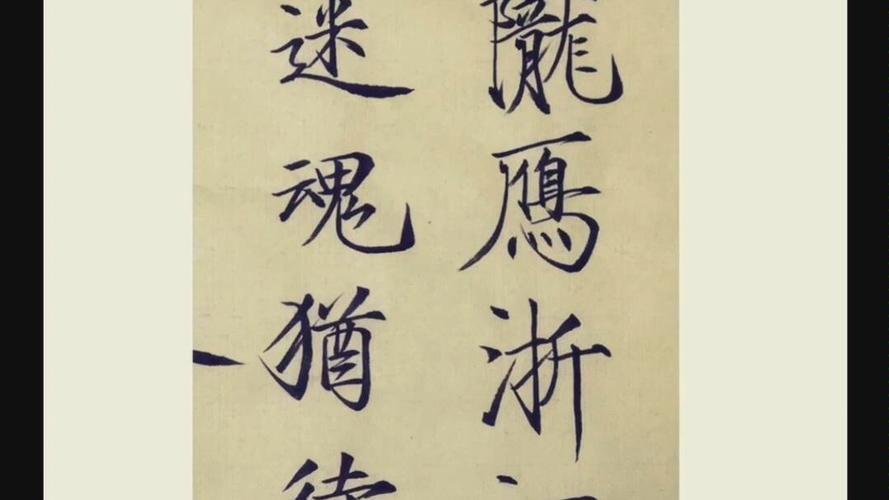 隴鴈浙
迷魂猶